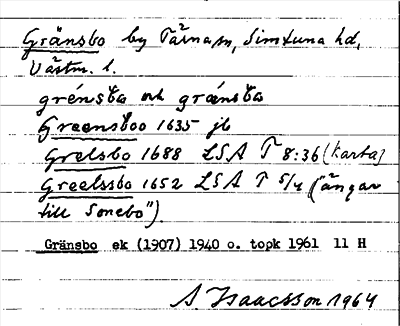 Gränsbo by Tärna sn, Simtuna hd,
Västm. l.
grénsta och grænsta
Greensboo 1635 jb
Grelsbo 1688 LSA T 8:36 (karta)
Greelssbo 1652 LSA T 5/4 ("ängar
till Sonebo").
Gränsbo ek (1907) 1940 o. topk 1961 11 H
A. Isaacsson 1964